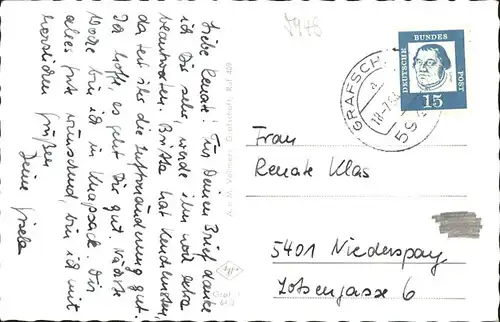 Liebe Renate! Für Deinen Brief danke
ich Dir sehr, werde ihn noch extra
beantworten. Britta hat Keuchhusten,
da tut ihr die Luftveränderung gut.
Ich hoffe es geht Dir gut. Nächste
Woche bin ich in Knapsack. Dir
alles gute wünschend, bin ich mit
herzlichen Grüßen
Deine Gisela
DEUTSCHE BUNDES POST
15
GRAFSCH
a
18-7.6
59
Frau
Renate Klas
5401 Niederspay
Lotsengasse 6